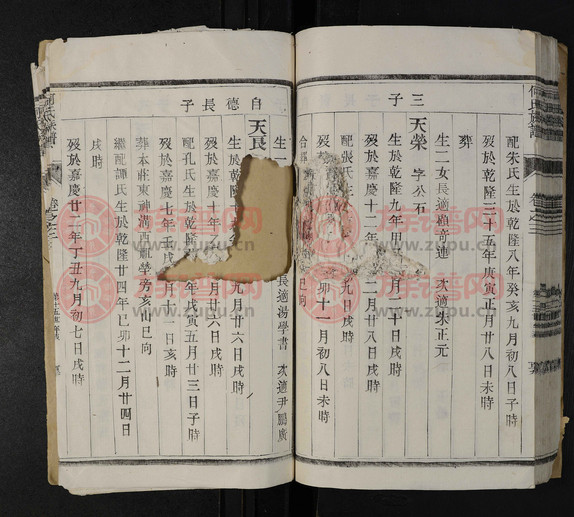 配朱氏生於乾隆八年癸亥九月初八日戌時
歿於乾隆三十五年庚寅正月廿八日未時
葬
生二女長適 奇連 次適朱正元
三子
天榮 字公石
生於乾隆九年甲 月二十日戌時
歿於嘉慶十二年 二月廿八日戌時
配張氏生於乾隆 九日戌時
歿於 卯十一月初八日未時
合 巳向
生 長適湯學書 次適尹鵬廣
自德長子
天長
生於 九月廿六日戌時
歿於嘉慶十年 月廿六日戌時
配孔氏生於乾隆 年戊寅五月廿三日子時
歿於嘉慶七年 月 二日亥時
葬本莊東神溝西 塋癸亥山巳向
繼配譚氏生於乾隆廿四年己卯十二月廿四日
戌時
歿於嘉慶廿二年丁丑九月初七日戌時
族譜网
www.zupu.cn